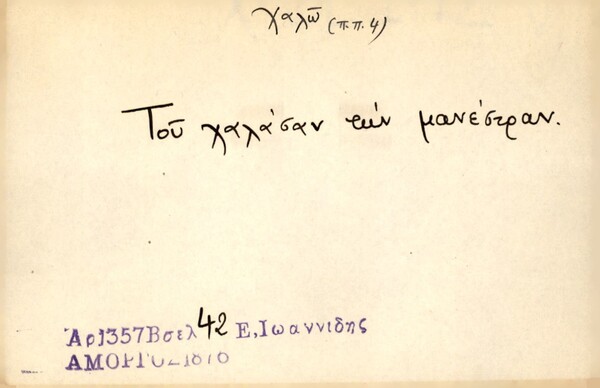 χαλῶ (π.π. 4)
Τοῦ χαλάσαν τὴν μανέστραν.
Ἀρ1357Β σελ 42 Ε, Ἰωαννίδης
ΑΜΟΡΓΟΣ 1876